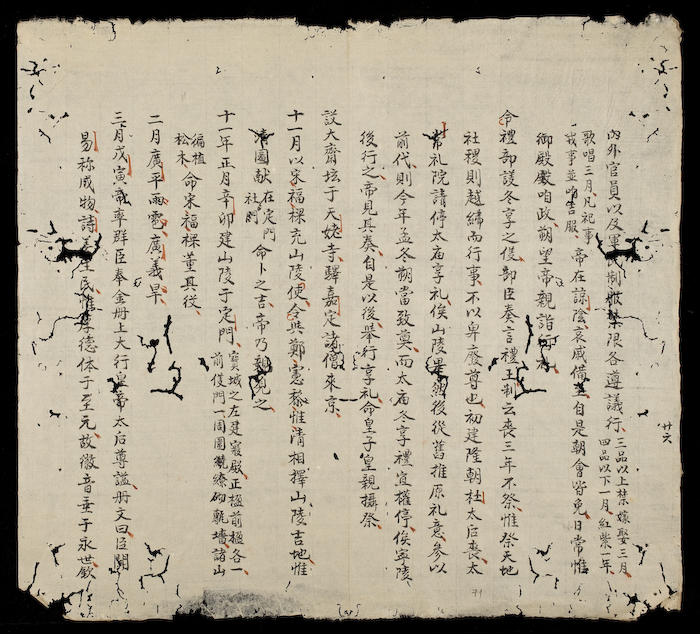 內外官員以及軍民制服禁限各遵議行三品以上禁嫁娶三月四品以下一月紅紫一年
歌唱三月凡祀事戎事並吉服帝在諒陰哀戚備至自是朝會皆免日常惟
御殿聽政朔望帝親詣
命禮部議冬享之後部臣奏言禮王制云喪三年不祭惟祭天地
社稷則越紼而行事不以卑廢尊也初建隆朝杜太后喪太
常礼院請停太庙享礼俟山陵畢後從舊推原礼意參以
前代則今年孟冬朔當致奠而太庙冬享禮宜權停俟寧陵
後行之帝見其奏自是以後舉行享礼命皇子皇親攝祭
設大齋坛于天姥寺驛嘉定諸僧來京
十一月以宋福樑充山陵使令與鄭憲黎惟清相擇山陵吉地惟
清圖献在定門社命卜之吉帝乃親見之
十一年正月辛卯建山陵于定門寶城之左建寢殿正楹前楹各一前後門一周圍繚砌甎墻諸山
徧植松木命宋福樑董其役
二月廣平雨雹廣義旱
三月戊寅帝率群臣奉金册上大行皇帝太后尊謚册文曰臣聞
易称成物詩美生民惟厚德体于至元故徽音垂于永世欽
廿六
71